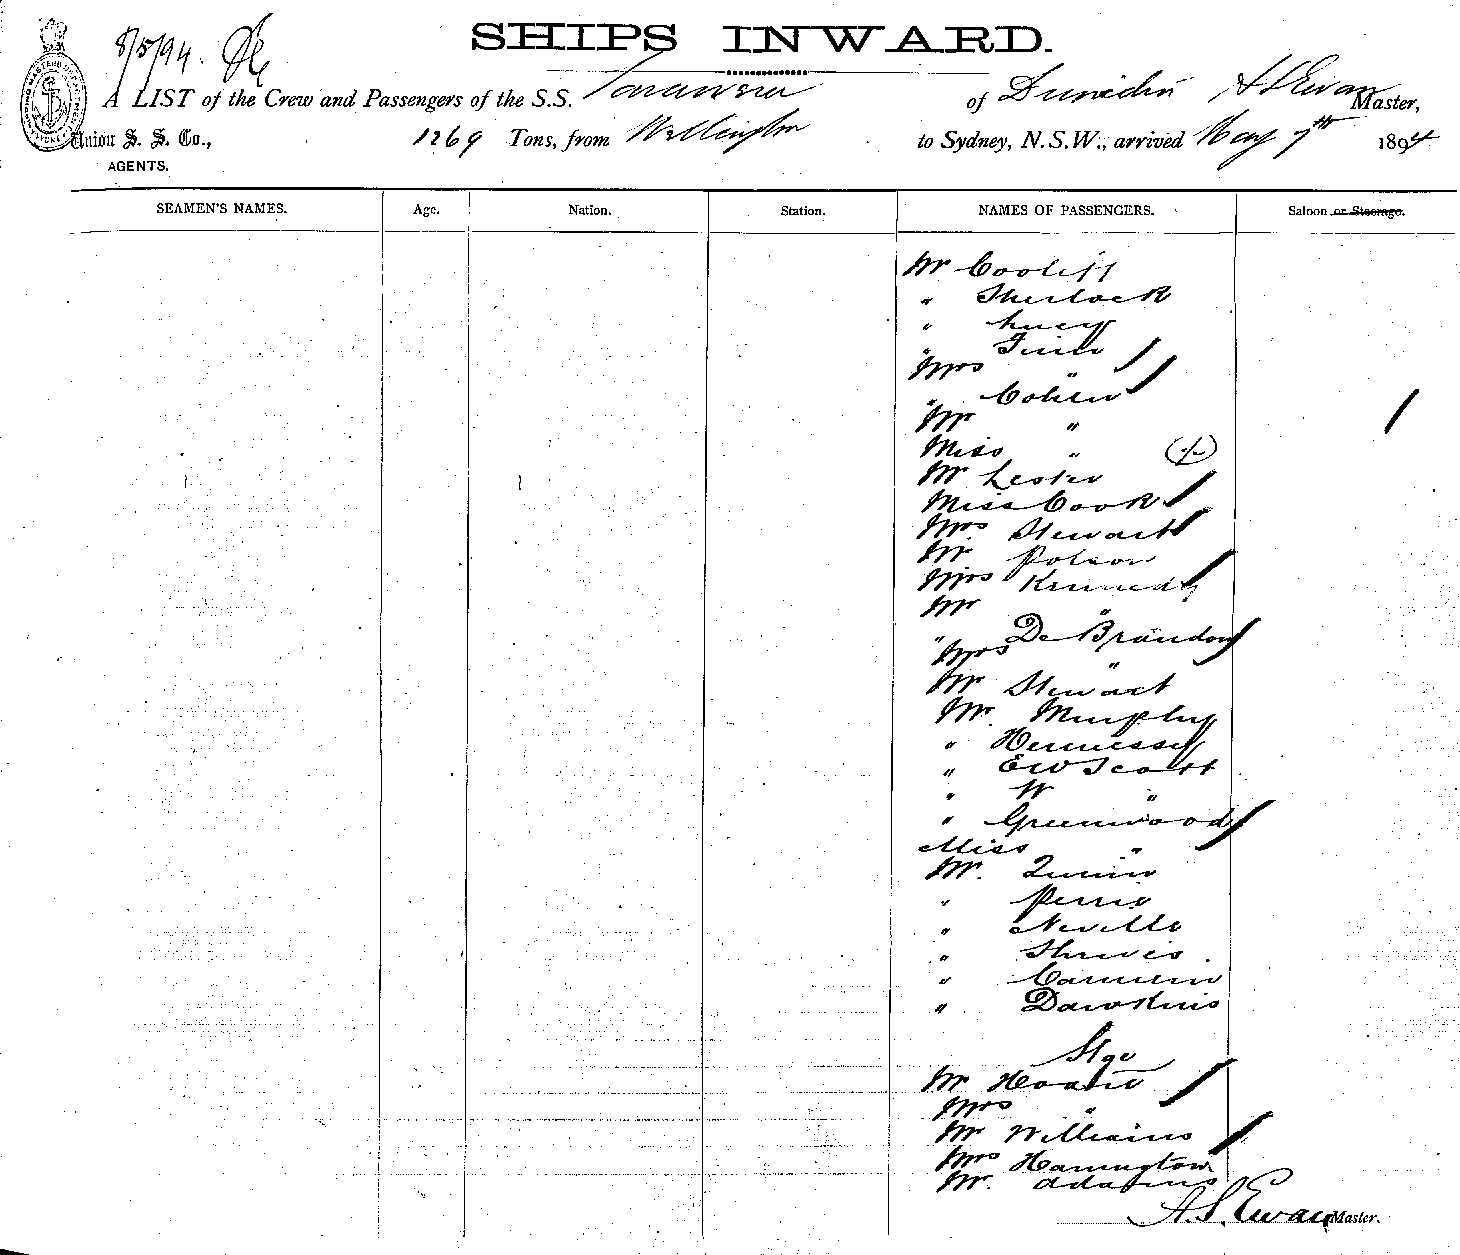 8/5/94.
SHIPS INWARD.
A LIST of the Crew and Passengers of the S.S. Tarawera of Dunedin A S Ewan Master,
Union S. S. Co., 1269 Tons, from Wellington to Sydney, N.S.W., arrived May 7th 1894
AGENTS.
SEAMEN'S NAMES. Age. Nation. Station. NAMES OF PASSENGERS. Saloon or Steerage.
Mr Cooliff
" Sherlock
" Lucy
"
Mrs "
" Cohen
Mr "
Miss "
Mr Lester
Miss Cook
Mrs Stewart
Mr Polson
Mrs Kennedy
Mr "
" De Brandon
Mrs "
Mr Stewart
Mr. Murphy
" Hennessy
" E W Scott
" W "
" Greenwood
Miss "
Mr. Quinn
"
" Neville
"
"
" Dawkins
Stge
Mr
Mrs "
Mr Williams
Mrs Harrington
Mr. Adams
A. S. Ewan Master.